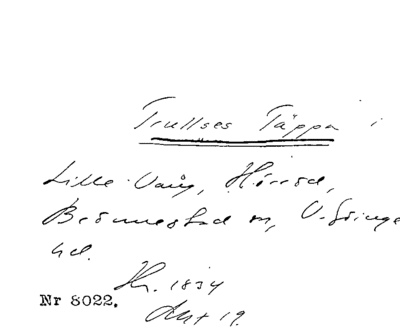 Trullses Täppa i
Lille Vång, Hörröd,
Brönnestad sn, V. Göinge
hd.
Hr. 1834
Akt 19.
Nr 8022.